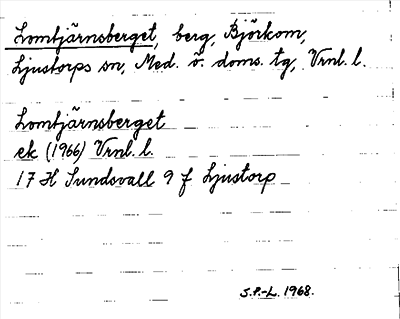 Lomtjärnsberget, berg, Björkom,
Ljustorps sn, Med. ö. doms. tg, Vrnl. l.
Lomtjärnsberget
ek (1966) Vrnl. l.
17 H Sundsvall 9 f Ljustorp
S.P.-L. 1968.